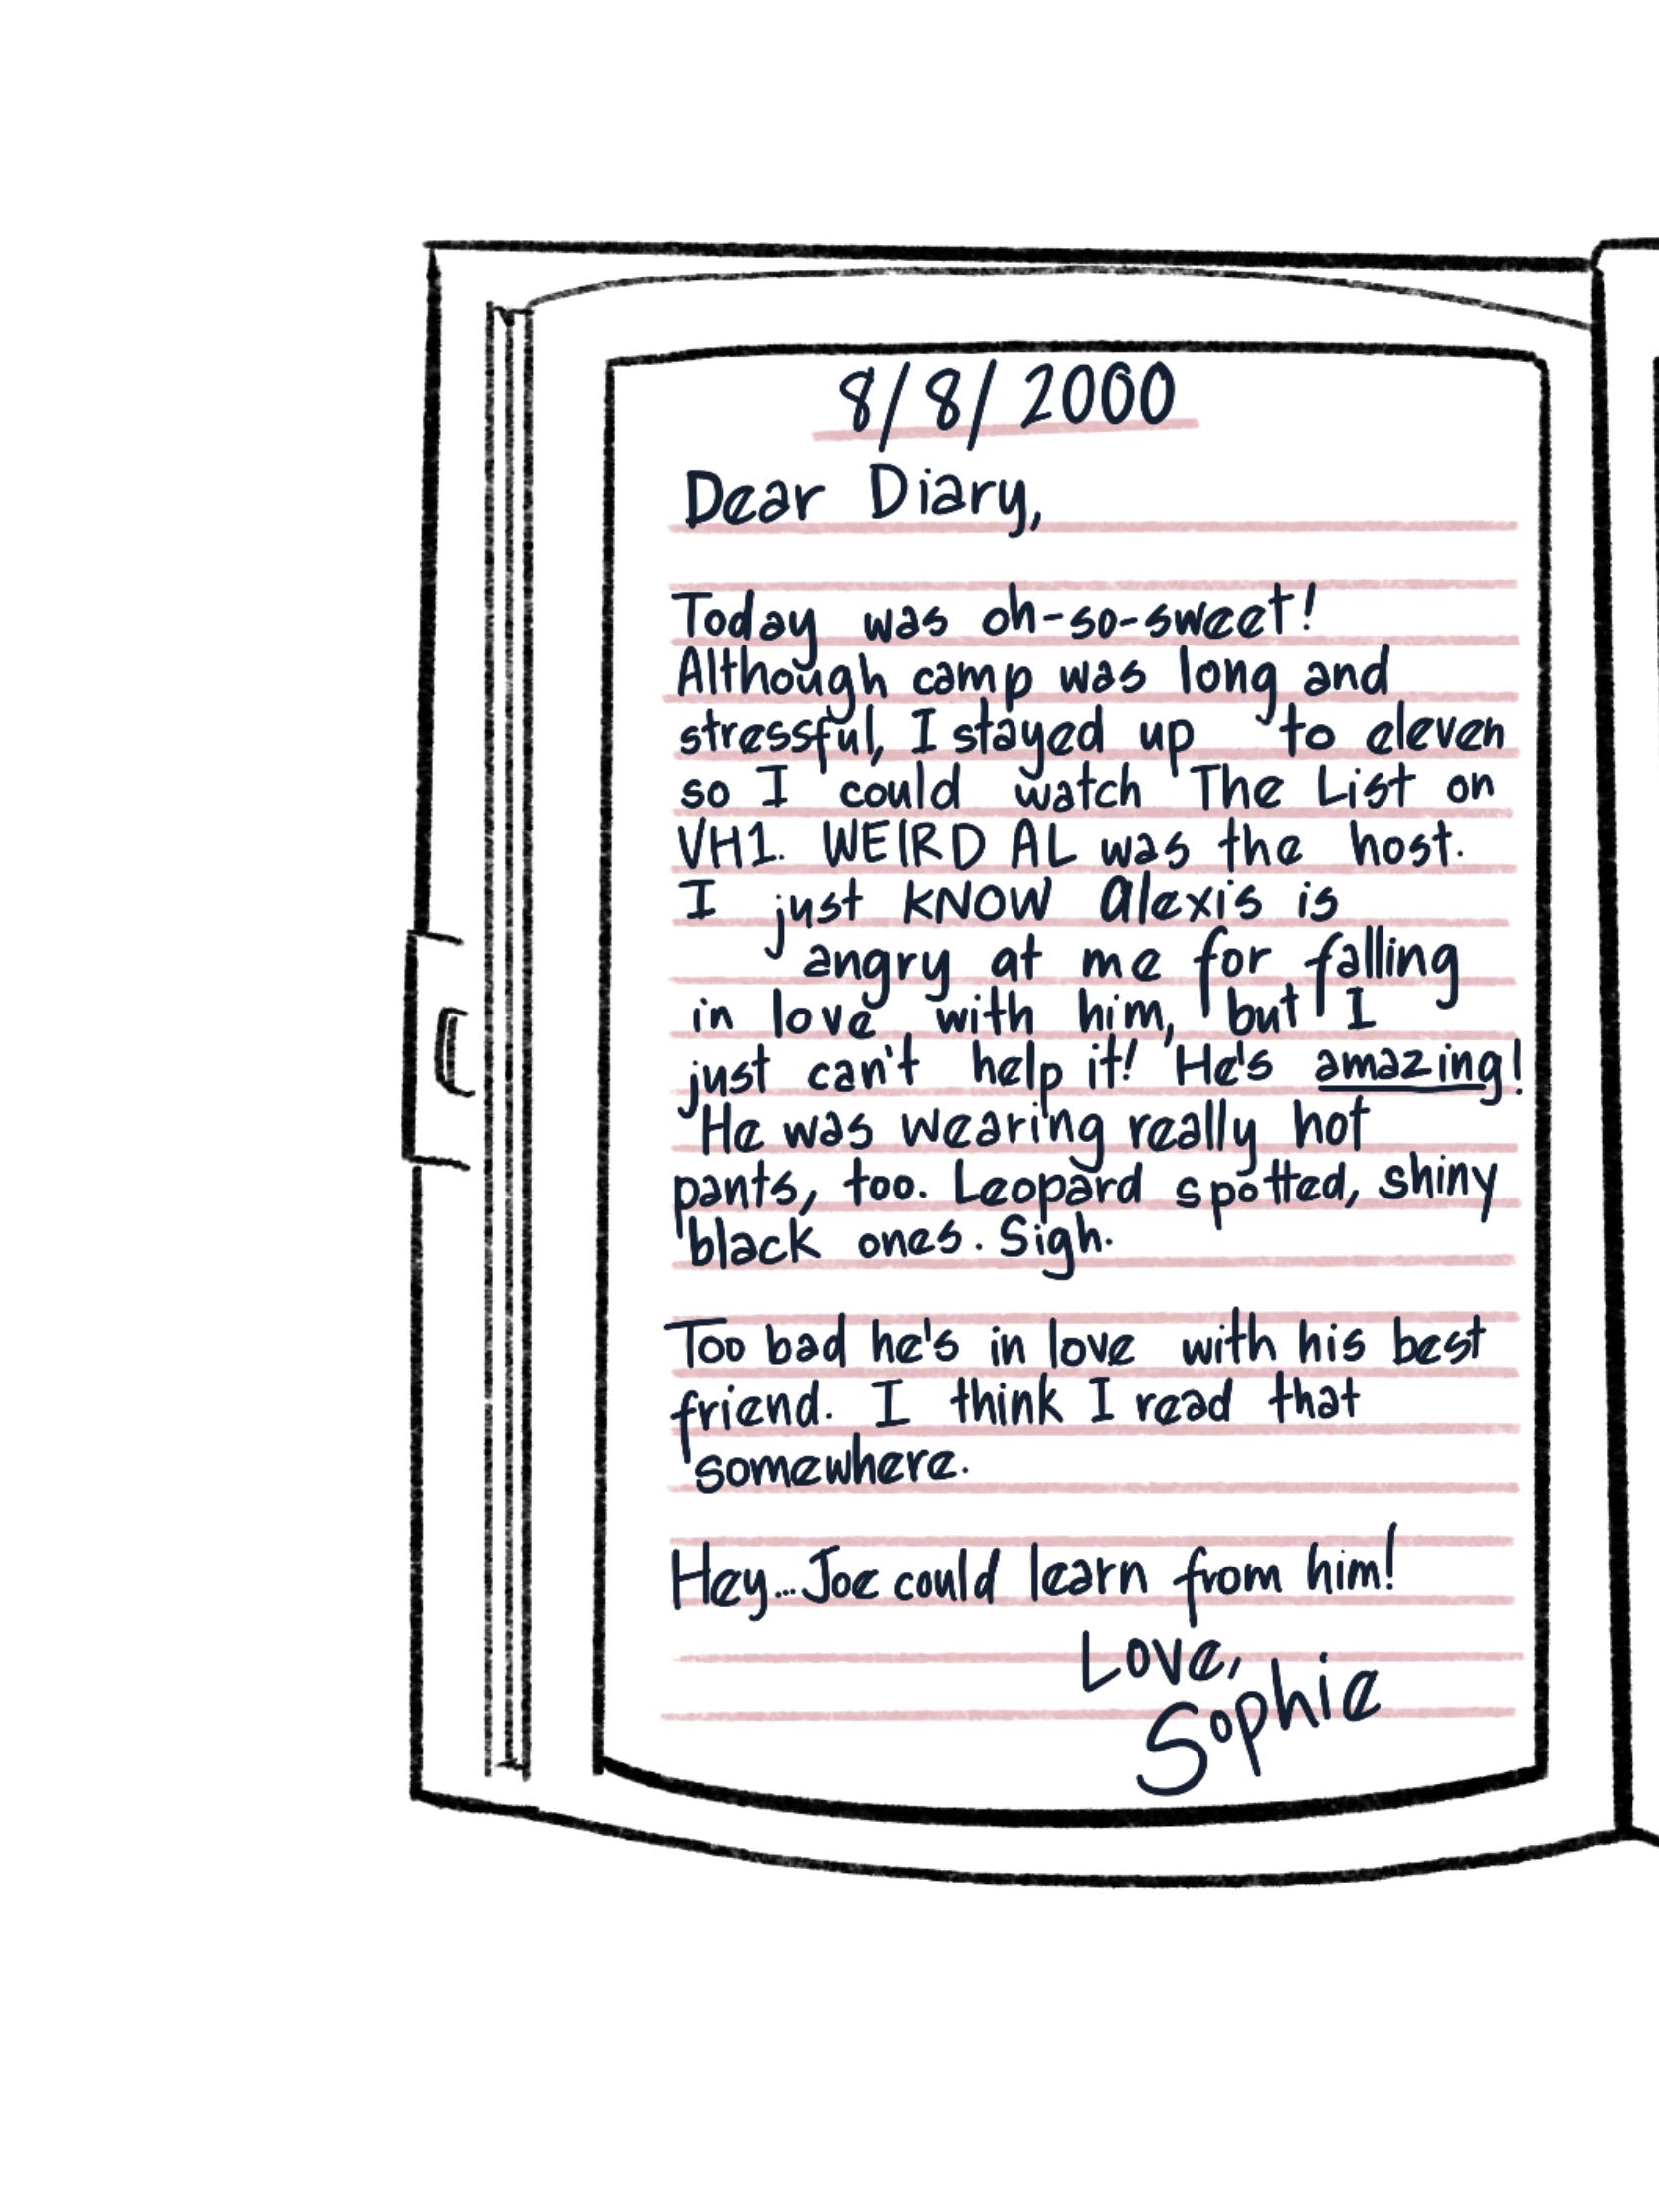 8/8/2000
Dear Diary,
Today was oh-so-sweet!
Although camp was long and
stressful, I stayed up to eleven
so I could watch The List on
VH1. WEIRD AL was the host.
I just KNOW Alexis is
angry at me for falling
in love with him, but I
just can't help it! He's amazing!
He was wearing really hot
pants, too. Leopard spotted, shiny
black ones. Sigh.
Too bad he's in love with his best
friend. I think I read that
somewhere.
Hey...Joe could learn from him!
Love,
Sophie